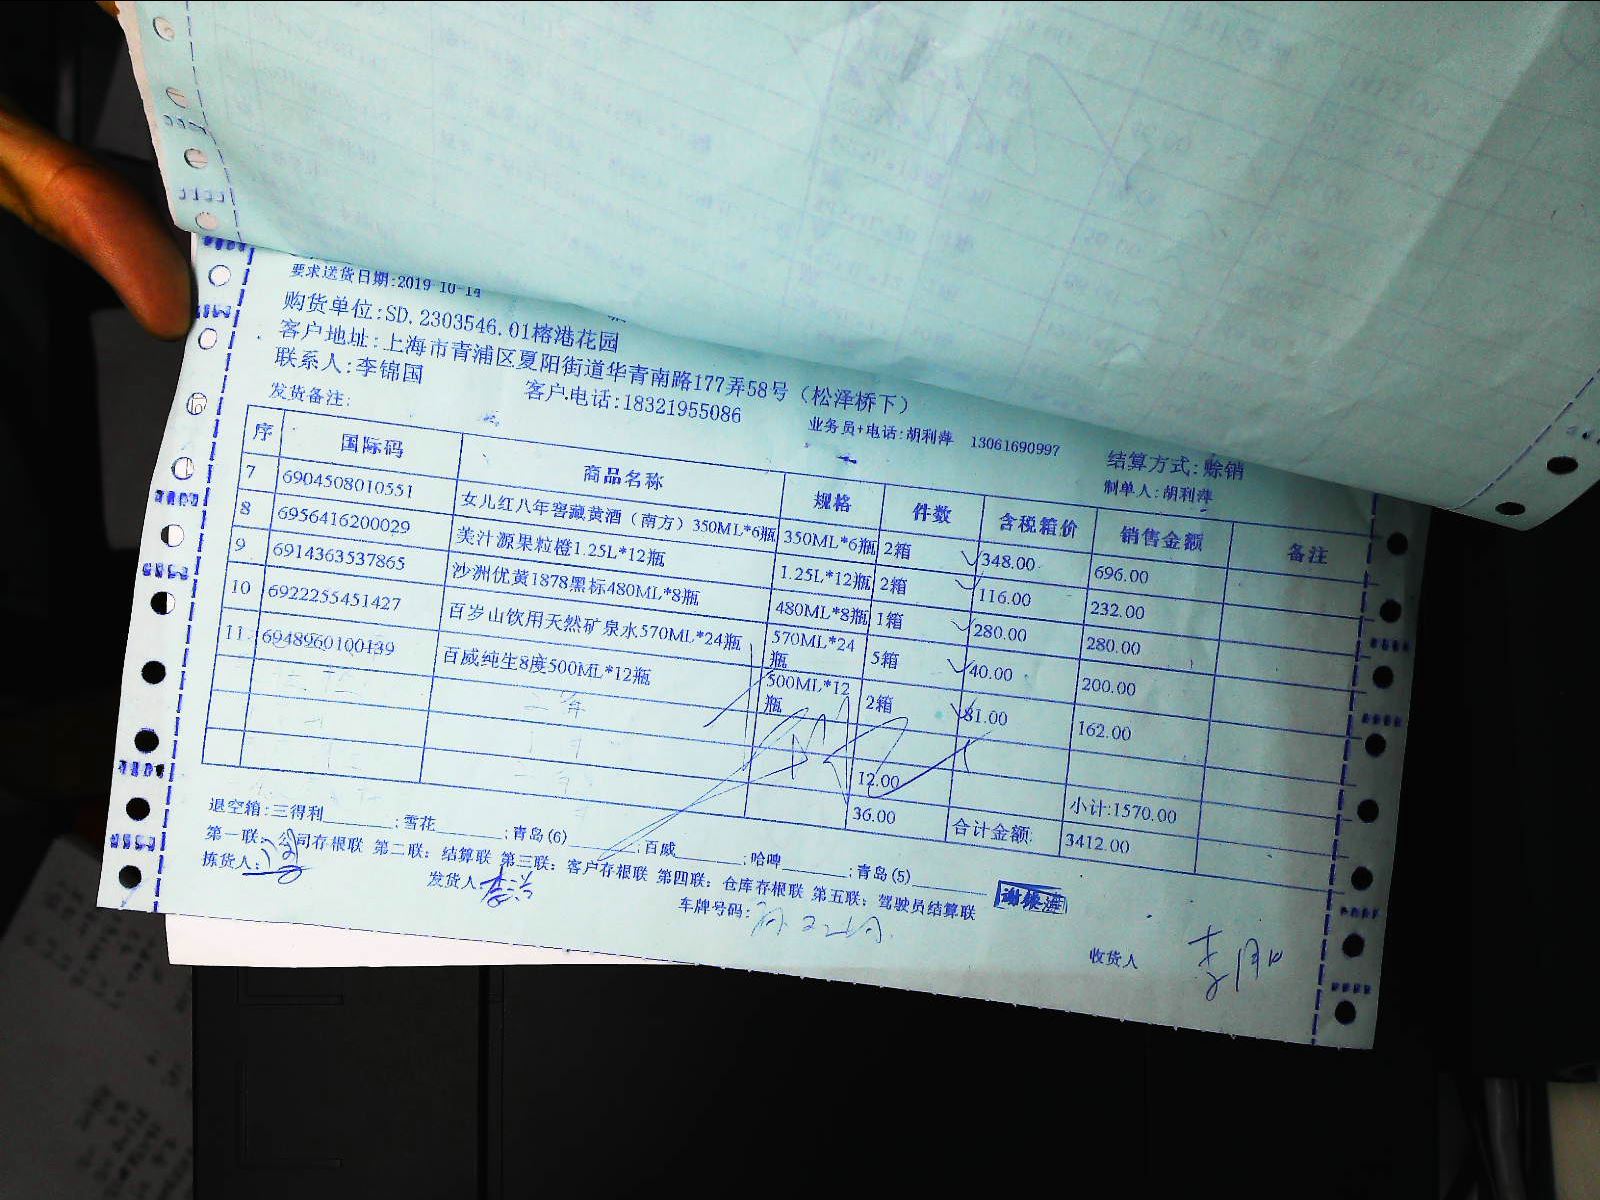 要求送货日期:2019-10-14
购货单位:SD.2303546.01榕港花园
客户地址:上海市青浦区夏阳街道华青南路177弄58号（松泽桥下）
联系人:李锦国 客户.电话:18321955086 业务员+电话:胡利萍 13061690997 结算方式:赊销
发货备注: 制单人:胡利萍
序 国际码 商品名称 规格 件数 含税箱价 销售金额 备注
7 6904508010551 女儿红八年窖藏黄酒（南方）350ML*6瓶 350ML*6瓶 2箱 348.00 696.00
8 6956416200029 美汁源果粒橙1.25L*12瓶 1.25L*12瓶 2箱 116.00 232.00
9 6914363537865 沙洲优黄1878黑标480ML*8瓶 480ML*8瓶 1箱 280.00 280.00
10 6922255451427 百岁山饮用天然矿泉水570ML*24瓶 570ML*24瓶 5箱 40.00 200.00
11 6948960100139 百威纯生8度500ML*12瓶 500ML*12瓶 2箱 81.00 162.00
12.00 小计:1570.00
36.00 合计金额: 3412.00
退空箱:三得利______;雪花______;青岛(6)______;百威______;哈啤______;青岛(5)______
第一联: 公司存根联 第二联: 结算联 第三联: 客户存根联 第四联: 仓库存根联 第五联: 驾驶员结算联
拣货人: 发货人: 车牌号码: 收货人